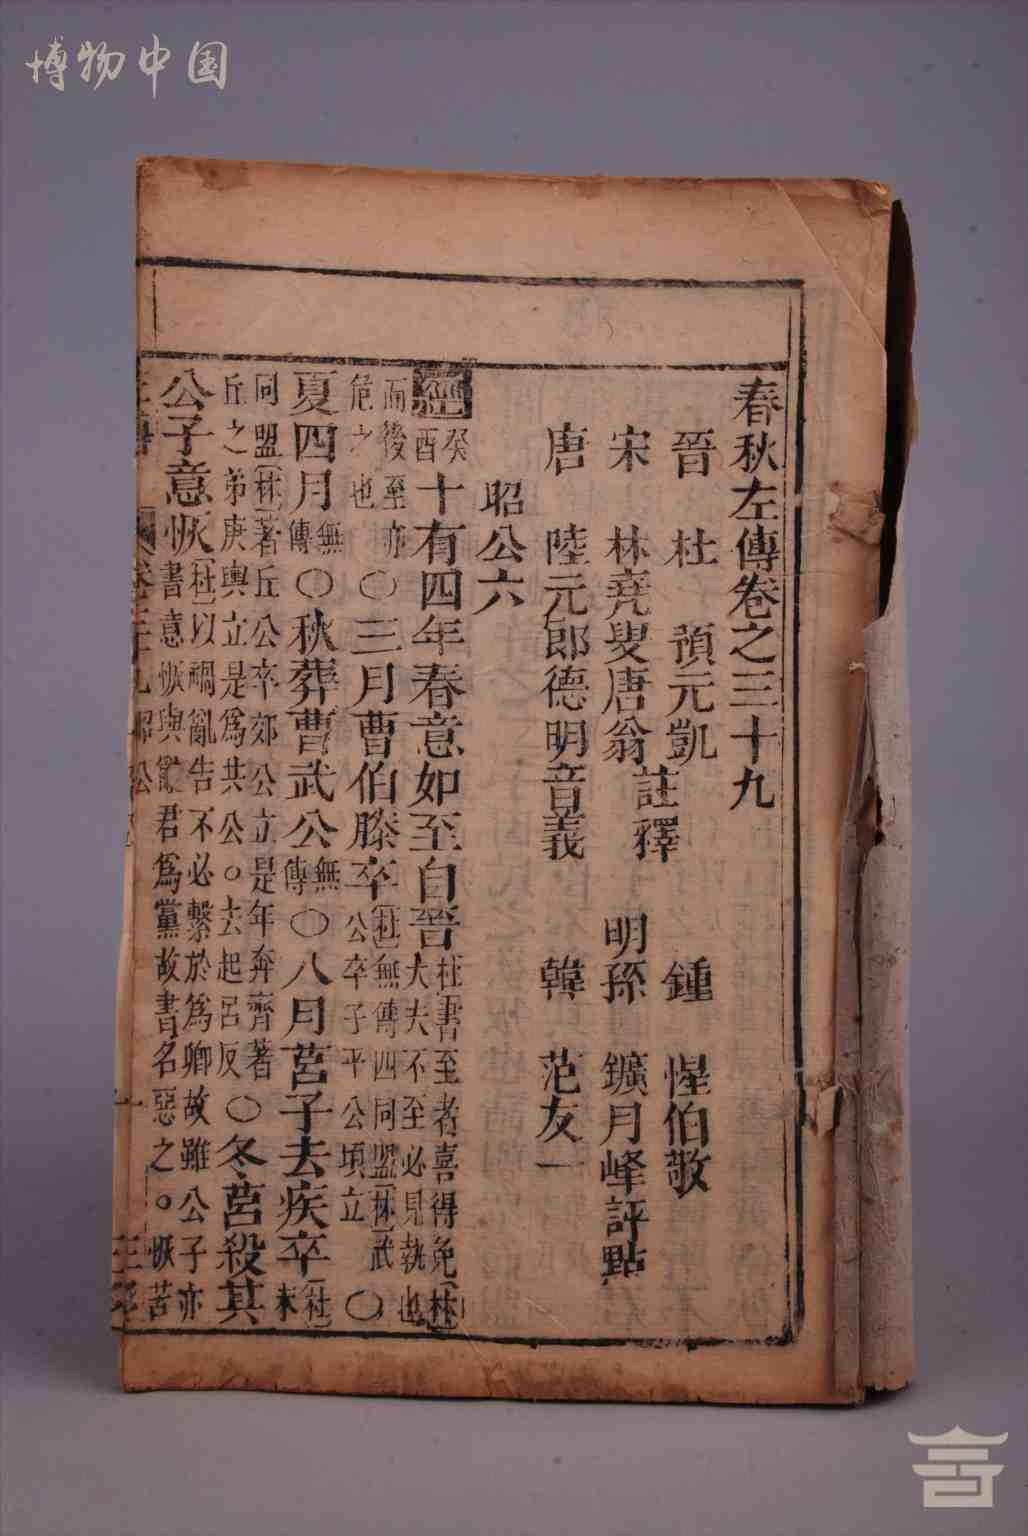 博物中国
春秋左傳卷之三十九
晉 杜 預元凱
宋 林堯叟唐翁
註釋
唐 陸元郎德明音義
鍾 惺伯敬
明孫 鑛月峰評點
韓 范友一
昭公六
經癸酉十有四年春意如至自晉杜書至者喜得免林大夫不至必見執也
面後至亦危之也〇三月曹伯滕卒杜無傳四同盟林武公卒子平公頃立〇
夏四月無傳〇秋葬曹武公無傳〇八月莒子去疾卒杜未
同盟林著丘公卒郊公立是年奔齊著丘之弟庚輿立是爲共公〇去起呂反〇冬莒殺其
公子意恢杜以禍亂告不必繫於爲卿故雖公子亦書意恢與亂君爲黨故書名惡之〇恢苦